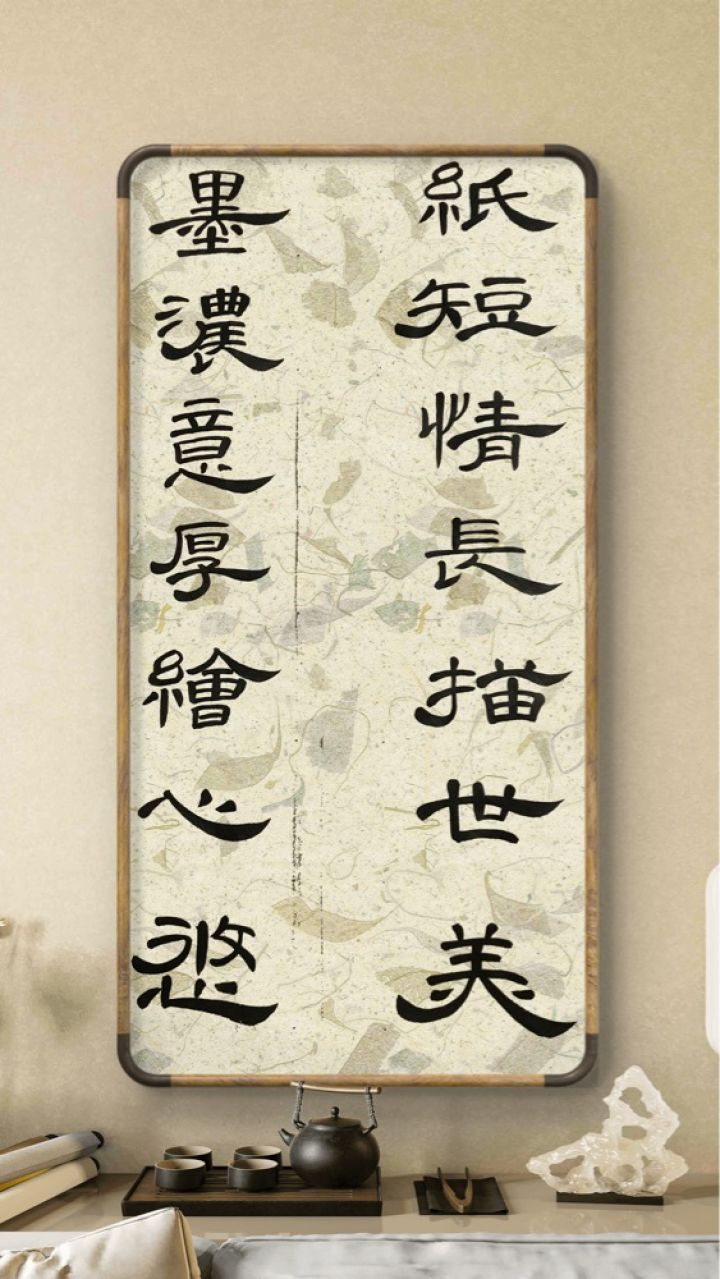 紙短情長描世美
墨濃意厚繪心悠